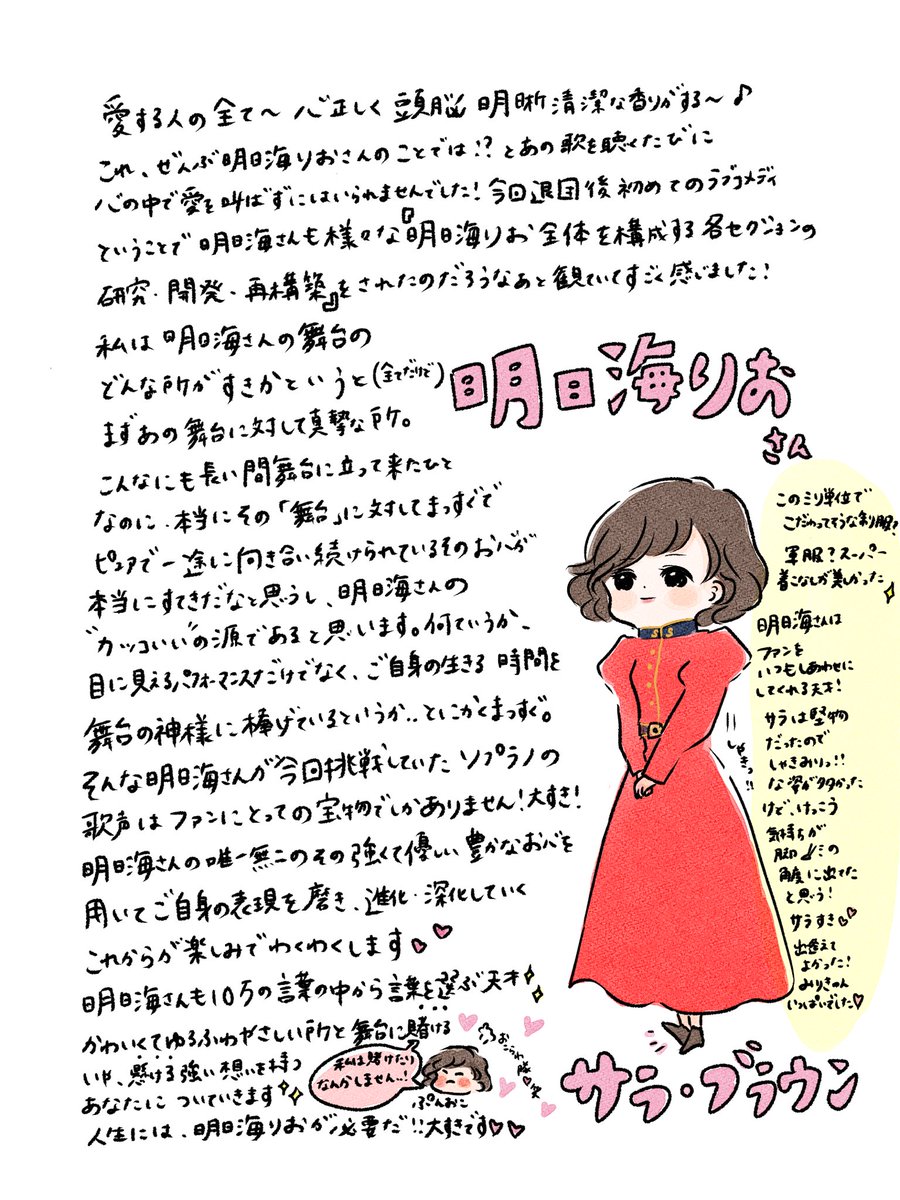 愛する人の全て〜 心正しく 頭脳 明晰 清潔な香りがする〜♪
これ、ぜんぶ明日海りおさんのことでは!? とあの歌を聴くたびに
心の中で愛を叫ばずにはいられませんでした! 今回退団後初めてのラブコメディ
ということで 明日海さんも様々な『明日海りお全体を構成する各セクションの
研究・開発・再構築』をされたのだろうなぁと観ていてすごく感じました!
私は明日海さんの舞台の
どんな所がすきかというと(全てだけど)
まずあの舞台に対して真摯な所。
こんなにも長い間舞台に立って来たひと
なのに、本当にその「舞台」に対してまっすぐで
ピュアで一途に向き合い続けられているそのお心が
本当にすてきだなと思うし、明日海さんの
"カッコいい"の源であると思います。何ていうか、
目に見えるパフォーマンスだけでなく、ご自身の生きる時間を
舞台の神様に捧げているというか..とにかくまっすぐ。
そんな明日海さんが今回挑戦していたソプラノの
歌声はファンにとっての宝物でしかありません!大すき!
明日海さんの唯一無二のその強くて優しい豊かなお心を
用いてご自身の表現を磨き、進化・深化していく
これからが楽しみでわくわくします
明日海さんも10万の言葉の中から言葉を選ぶ天才
かわいくてゆるふわやさしい所と舞台に賭ける
いや、懸ける強い想いを持つ
あなたについていきます
人生には、明日海りおが必要だ!!大すきです
私は賭けたり
なんかしません..!
ぷんおこ
明日海りお
さん
このミリ単位で
こだわってそうな制服?
軍服?スーパー
着こなしが美しかった
明日海さんは
ファンを
いつもしあわせに
してくれる天才!
サラは堅物
だったので
しゃきみりっ!!
な姿が多かった
けど、けっこう
気持ちが
脚の
角度に出てた
と思う!
サラすき
出逢えて
よかった!
みりきゅん
いっぱいでした
しゃきっ!!
サラ・ブラウン